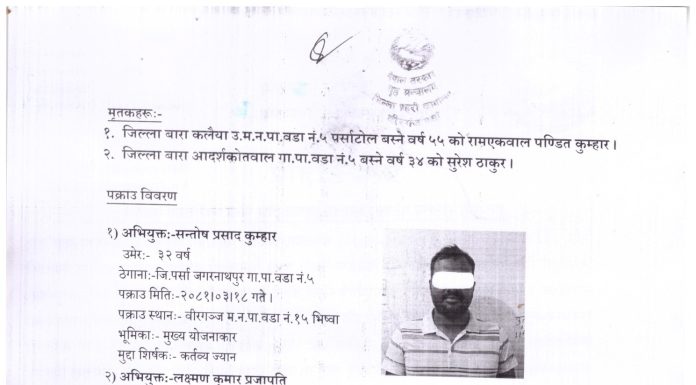 नेपाल सरकार
गृह मन्त्रालय
मृतकहरू:-
१. जिल्ला बारा कलैया उ.म.न.पा.वडा नं.५ पर्साटोल बस्ने वर्ष ५५ को रामएकवाल पण्डित कुम्हार ।
२. जिल्ला बारा आदर्शकोतवाल गा.पा.वडा नं.५ बस्ने वर्ष ३४ को सुरेश ठाकुर ।
पक्राउ विवरण
१) अभियुक्त:-सन्तोष प्रसाद कुम्हार
उमेर:- ३२ वर्ष
ठेगाना:-जि.पर्सा जगरनाथपुर गा.पा.वडा नं.५
पक्राउ मिति:-२०८१।०३।१८ गते ।
पक्राउ स्थान:- वीरगञ्ज म.न.पा.वडा नं.१५ भिष्वा
भूमिका:- मुख्य योजनाकार
मुद्दा शिर्षक:- कर्तव्य ज्यान
२) अभियुक्त:-लक्ष्मण कुमार प्रजापति